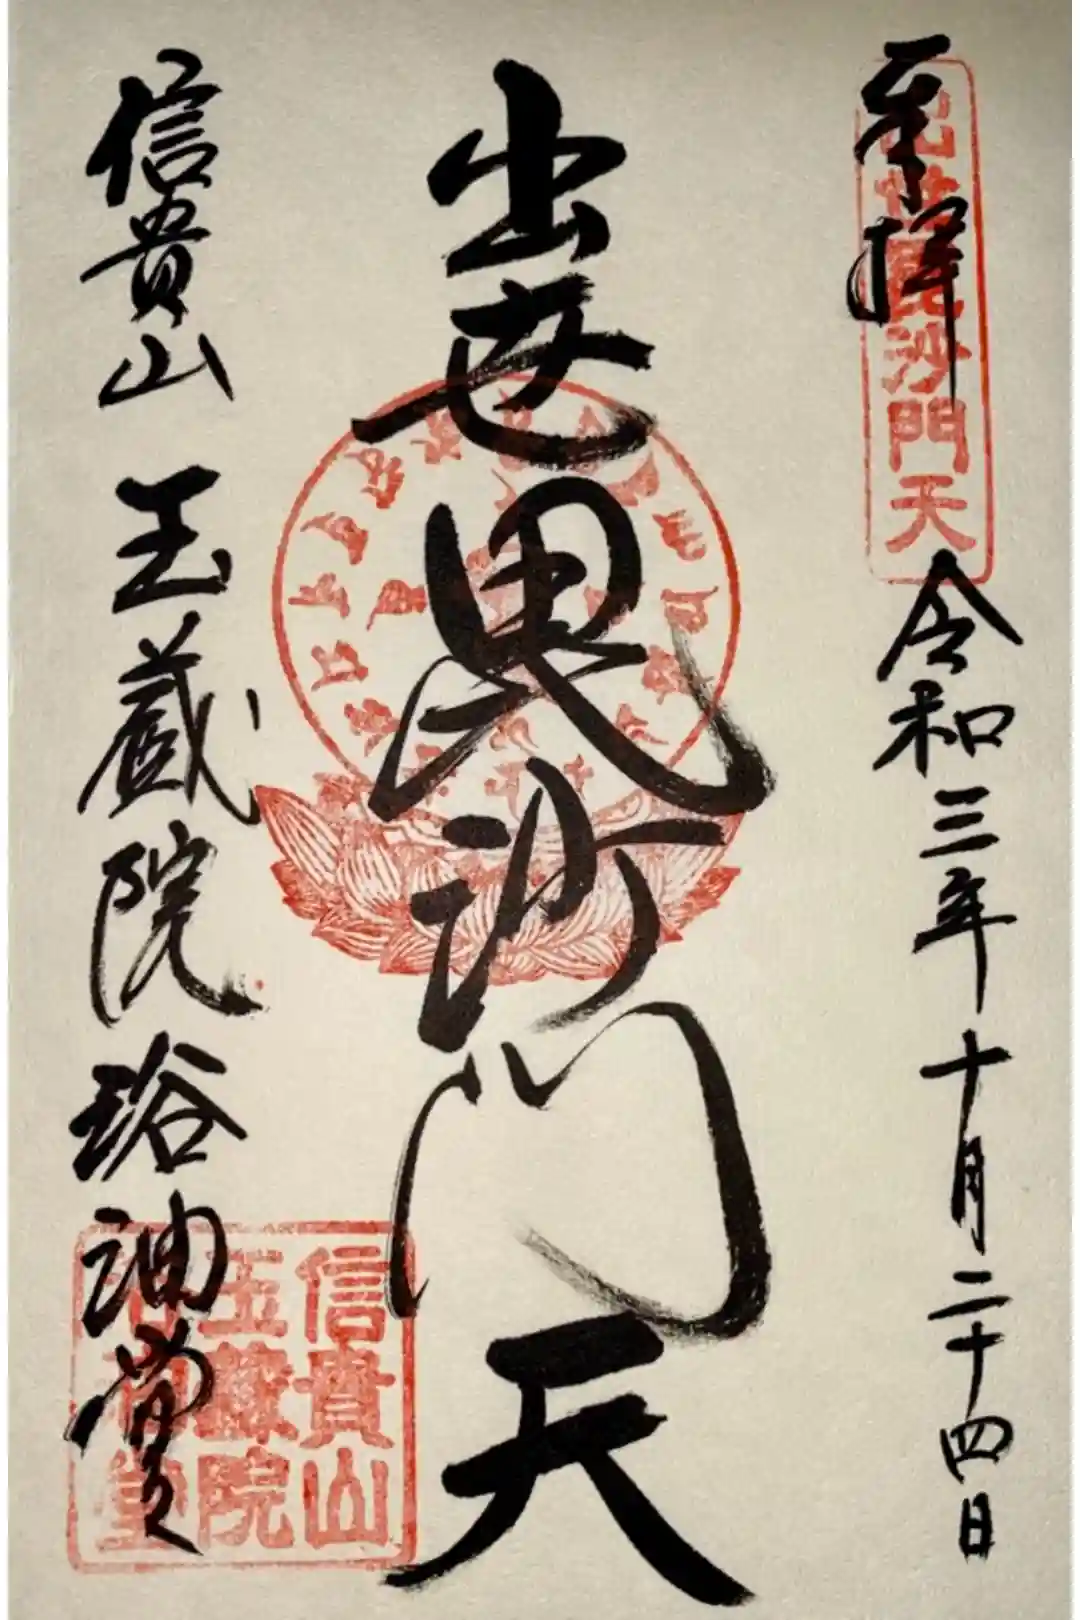 奉拝
出世毘沙門天
令和三年十月二十四日
出世毘沙門天
信貴山 玉蔵院 浴油堂
信貴山
玉蔵院
堂